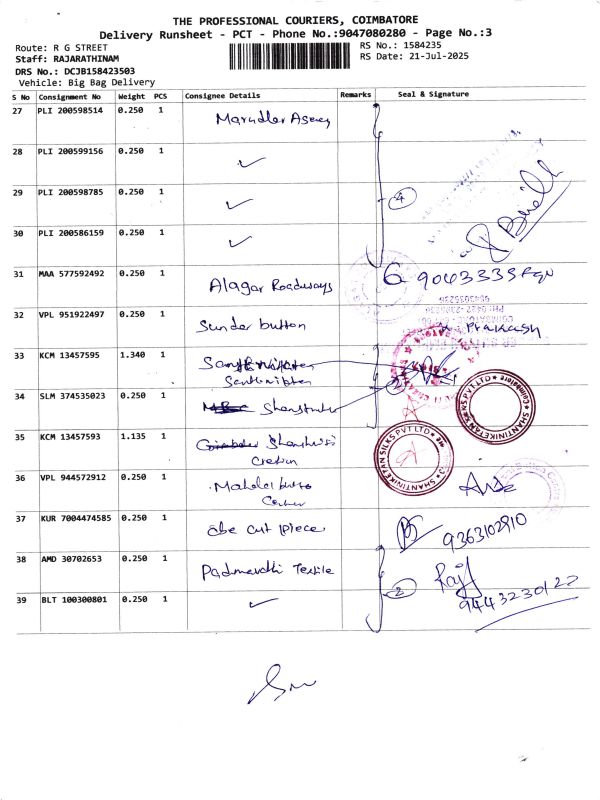 THE PROFESSIONAL COURIERS, COIMBATORE
Delivery Runsheet - PCT - Phone No.:9047080280 - Page No.:3
Route: R G STREET
RS No.: 1584235
Staff: RAJARATHINAM
RS Date: 21-Jul-2025
DRS No.: DCJB158423503
Vehicle: Big Bag Delivery
S No Consignment No Weight PCS Consignee Details Remarks Seal & Signature
27 PLI 200598514 0.250 1
28 PLI 200599156 0.250 1 ✓
29 PLI 200598785 0.250 1 ✓ 4
30 PLI 200586159 0.250 1 ✓
31 MAA 577592492 0.250 1 Alagar Roadways
32 VPL 951922497 0.250 1 Sunder button Prakash
33 KCM 13457595 1.340 1
34 SLM 374535023 0.250 1
SHANTINIKETAN SILKS PVT LTD Coimbatore
35 KCM 13457593 1.135 1
SHANTINIKETAN SILKS PVT LTD
36 VPL 944572912 0.250 1
37 KUR 7004474585 0.250 1 cut piece 9363102910
38 AMD 30702653 0.250 1 Padmavathi Textile
2 9443230122
39 BLT 100300801 0.250 1 ✓